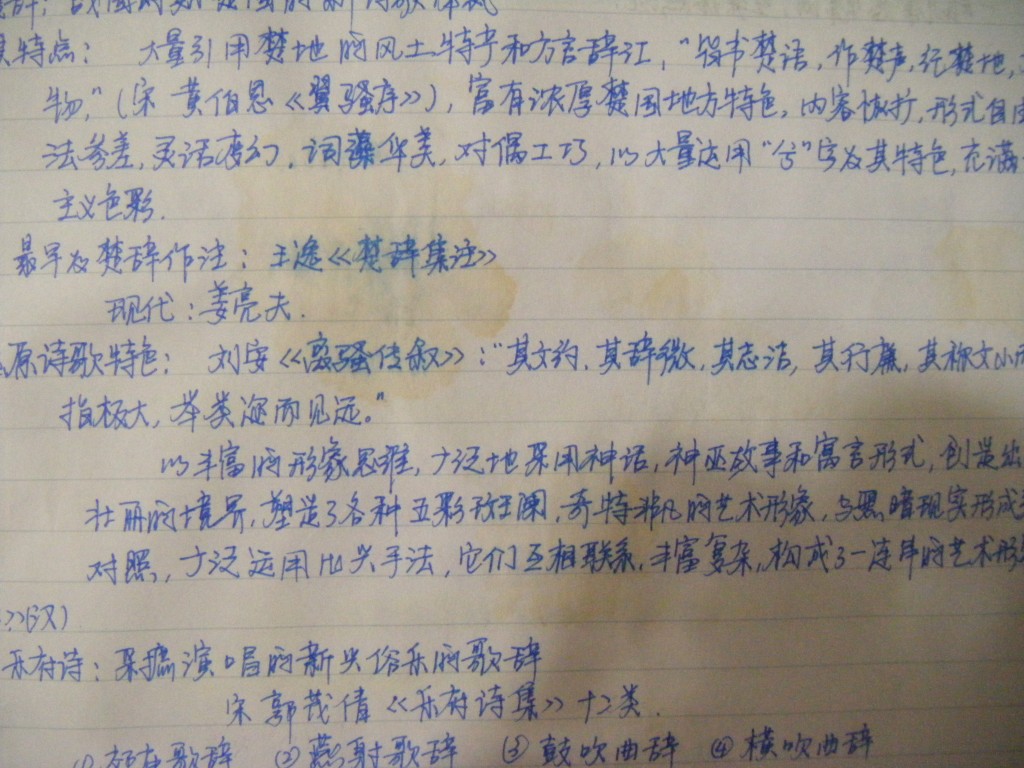 辞：战国时期楚国的新诗歌体式
特点： 大量引用楚地的风土特产和方言辞汇，“皆书楚语，作楚声，纪楚地，
物，”（宋 黄伯思《翼骚序》），富有浓厚楚国地方特色，内容恢扩，形式自由
法参差，灵活变幻，词藻华美，对偶工巧，以大量运用“兮”字为其特色，充满
主义色彩．
最早为楚辞作注：王逸《楚辞集注》
现代：姜亮夫．
原诗歌特色： 刘安《离骚传叙》：“其文约，其辞微，其志洁，其行廉，其称文小而
指极大，举类迩而见远。”
以丰富的形象思维，广泛地采用神话，神巫故事和寓言形式，创造出
壮丽的境界，塑造了各种五彩斑斓，奇特非凡的艺术形象，与黑暗现实形成
对照，广泛运用比兴手法，它们互相联系，丰富复杂，构成了一连串的艺术形
》（汉）
乐府诗：采摭演唱的新兴俗乐的歌辞
宋 郭茂倩《乐府诗集》十二类．
① 郊庙歌辞 ② 燕射歌辞 ③ 鼓吹曲辞 ④ 横吹曲辞